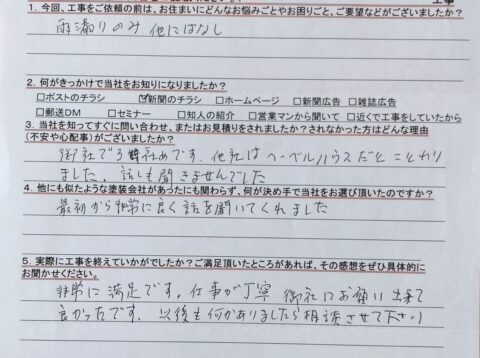 工事
1. 今回、工事をご依頼の前は、お住まいにどんなお悩みごとやお困りごと、ご要望などがございましたか?
雨漏りのみ 他にはなし
2. 何がきっかけで当社をお知りになりましたか?
□ポストのチラシ ☑新聞のチラシ □ホームページ □新聞広告 □雑誌広告
□郵送DM □セミナー □知人の紹介 □営業マンから聞いて □近くで工事をしていたから
3. 当社を知ってすぐに問い合わせ、またはお見積りをされましたか?されなかった方はどんな理由
(不安や心配事)がございましたか?
御社で3社めです、他社はヘーベルハウスだと ことわり
ました、話しも聞きませんでした
4. 他にも似たような塗装会社があったにも関わらず、何が決め手で当社をお選び頂いたのですか?
最初から非常に良く話を聞いてくれました
5. 実際に工事を終えていかがでしたか?ご満足頂いたところがあれば、その感想をぜひ具体的に
お聞かせください。
非常に満足です。仕事が丁寧 御社にお願い出来て
良かったです、以後も何かありましたら相談させて下さい